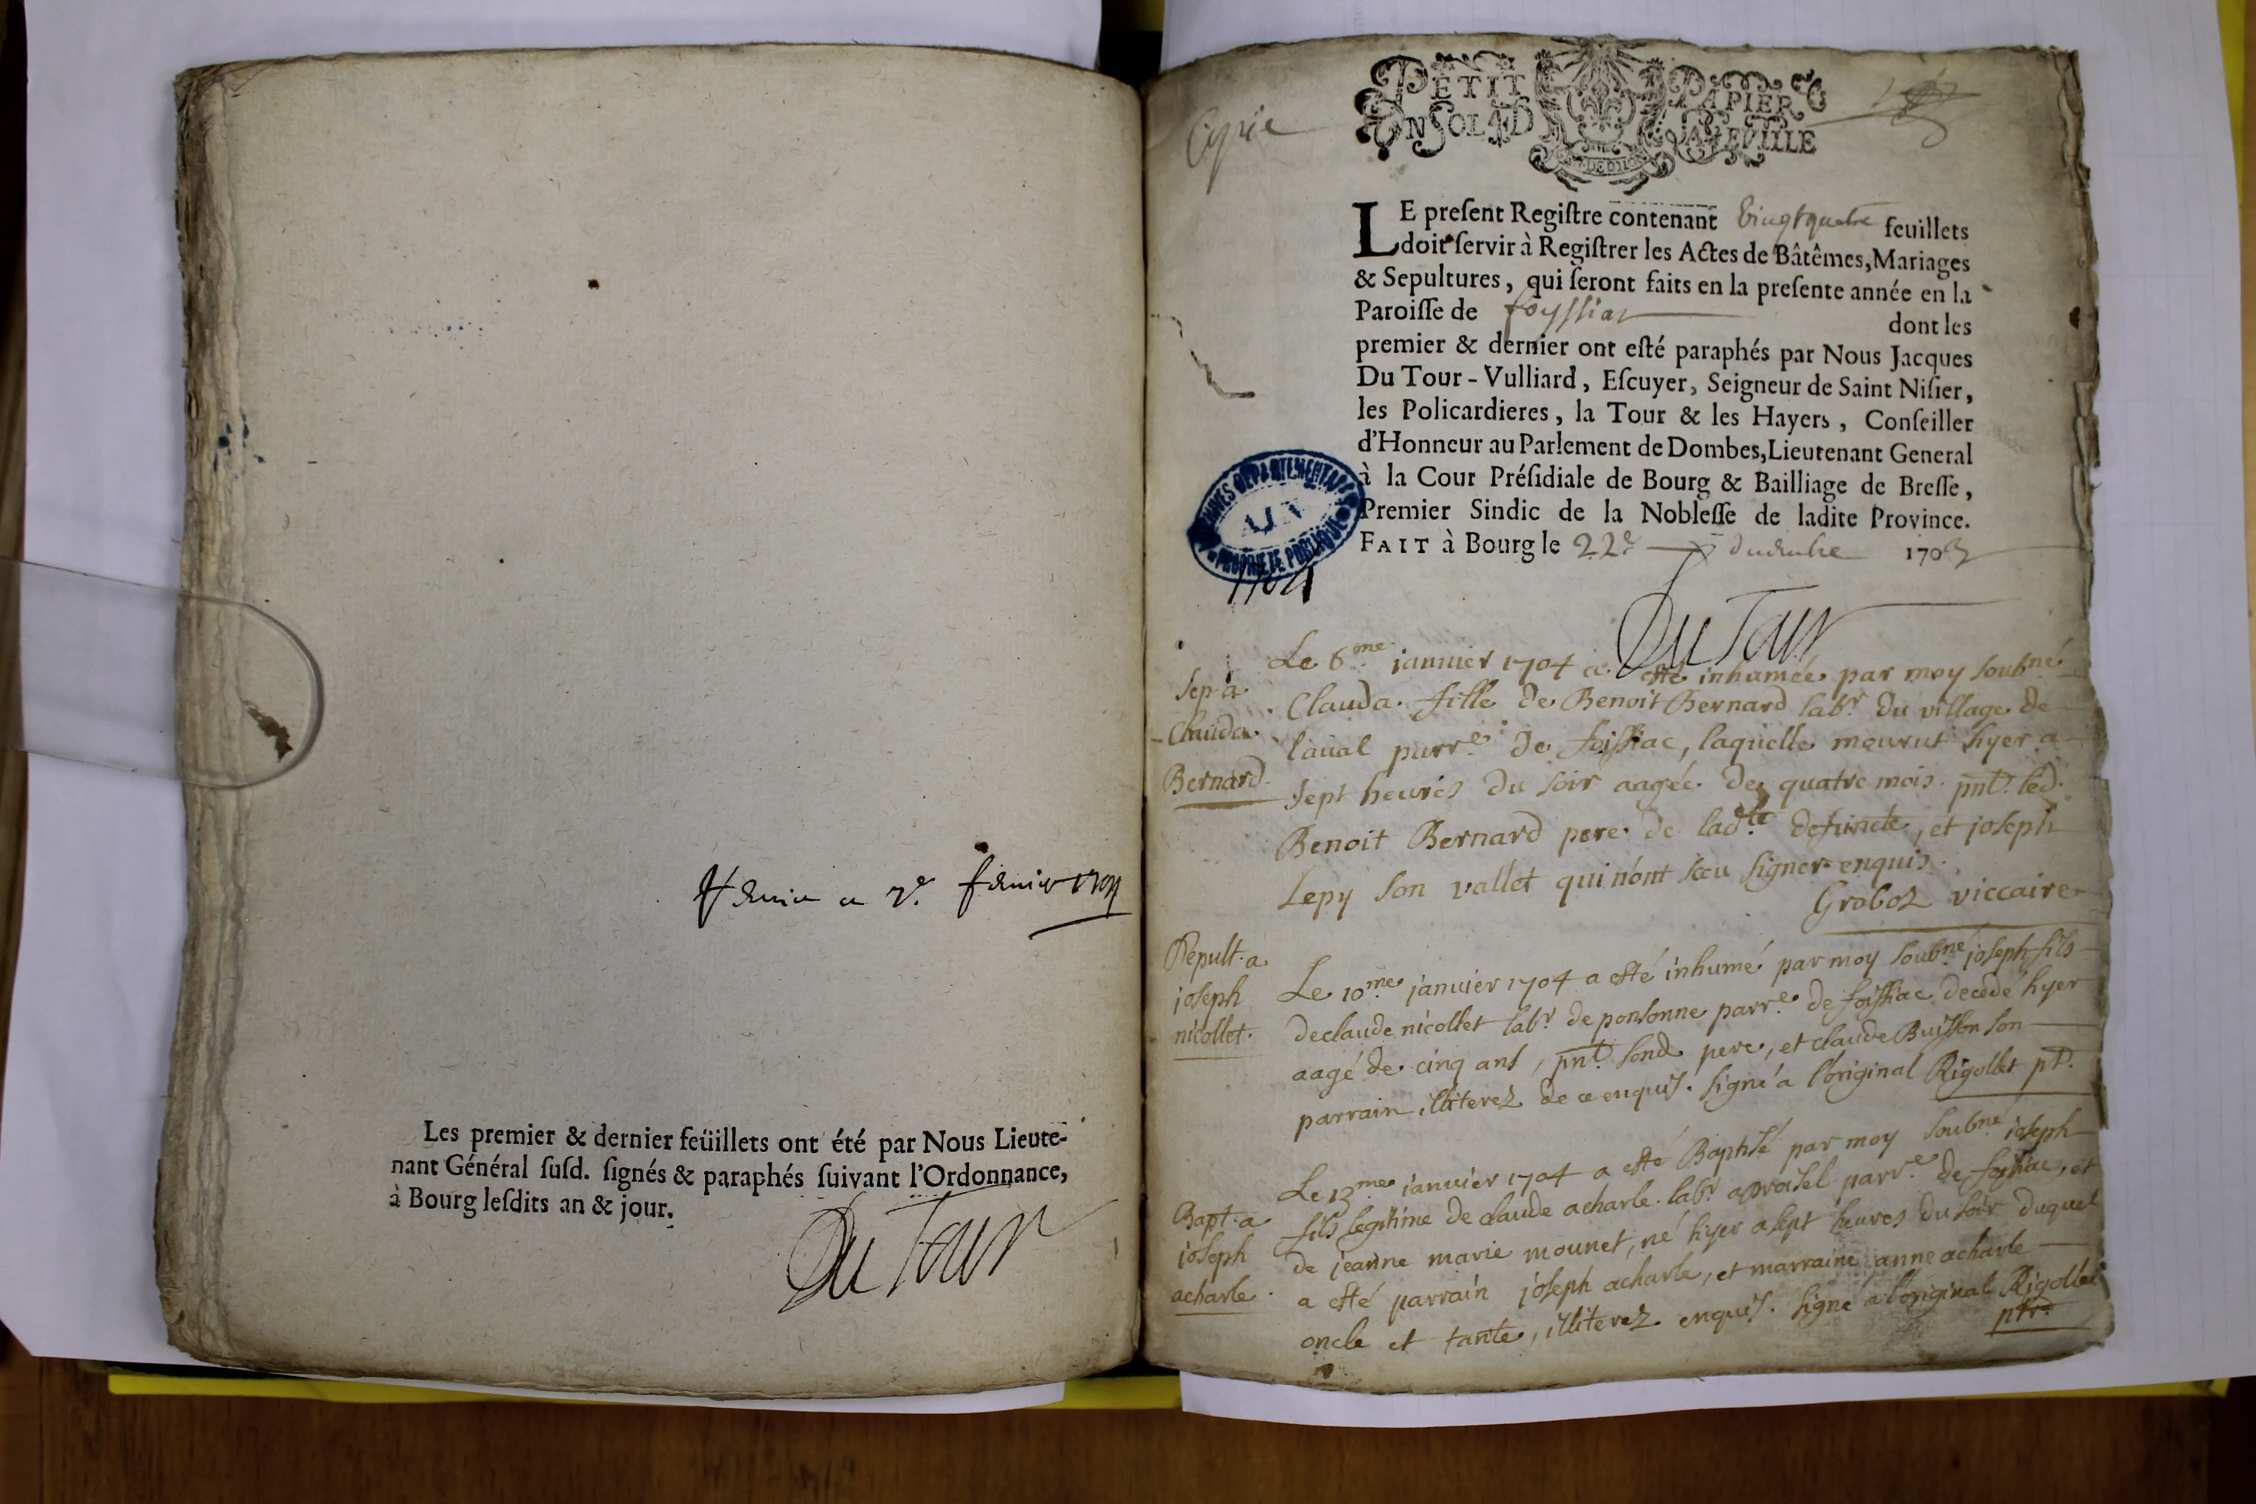 fevrier 1704
Les premier & dernier feüillets ont été par Nous Lieute-
nant Général susd. signés & paraphés suivant l'Ordonnance,
à Bourg lesdits an & jour.
Du Tour
Copie
PETIT PAPIER
UN SOL 4 D LA FEVILLE
LE present Registre contenant Vingt quatre feuillets
doit servir à Registrer les Actes de Bâtêmes, Mariages
& Sepultures, qui seront faits en la presente année en la
Paroisse de foyssiat dont les
premier & dernier ont esté paraphés par Nous Jacques
Du Tour-Vulliard, Escuyer, Seigneur de Saint Nisier,
les Policardieres, la Tour & les Hayers, Conseiller
d'Honneur au Parlement de Dombes, Lieutenant General
à la Cour Présidiale de Bourg & Bailliage de Bresse,
Premier Sindic de la Noblesse de ladite Province.
FAIT à Bourg le 22e decembre 1703
ARCHIVES DEPARTEMENTALES
AIN
PROPRIETE PUBLIQUE
1704
Du Tour
Sep. a
Clauda
Bernard
Le 6me janvier 1704 a esté inhumée par moy soubné
Clauda fille de Benoit Bernard labr du village de
laval parre de foissiac, laquelle mourut hyer a
sept heures du soir aagée de quatre mois. pnt. led.
Benoit Bernard pere de ladte defuncte, et joseph
Lepy son vallet qui n'ont sceu signer enquis.
Groboz viccaire
Sepult. a
joseph
nicollet.
Le 10me janvier 1704 a esté inhumé par moy soubné joseph fils
de claude nicollet labr de ponsonne parre de foissiac decedé hyer
aagé de cinq ans, pnt. sond pere, et claude Buisson son
parrain illiterez de ce enquis. signé a l'original Rigollet pt.
Bapt. a
joseph
acharle.
Le 13me janvier 1704 a esté Baptisé par moy soubné joseph
fils legitime de claude acharle labr parre de foissiac, et
de jeanne marie mounet, né hyer a sept heures du soir duquel
a esté parrain joseph acharle, et marraine anne acharle
oncle et tante, illiterez enquis. signé a l'original Rigollet
ptre.